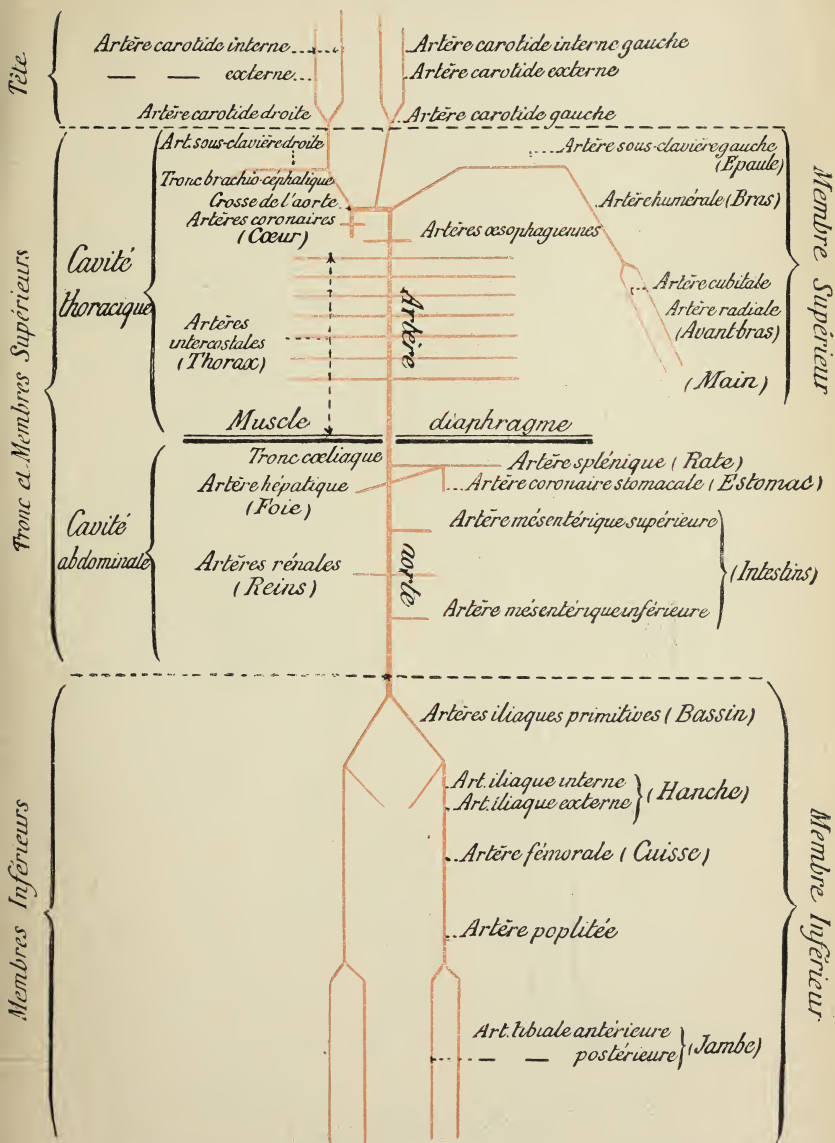 Tête
Artère carotide interne
— — externe
Artère carotide droite
Artère carotide interne gauche
Artère carotide externe
Artère carotide gauche
Tronc et Membres Supérieurs
Cavité
thoracique
Art. sous-clavière droite
Tronc brachio-céphalique
Crosse de l'aorte
Artères coronaires
(Cœur)
Artères œsophagiennes
Artère sous-clavière gauche
(Epaule)
Artère humérale (Bras)
Artère cubitale
Artère radiale
(Avant bras)
(Main)
Membre Supérieur
Artères
intercostales
(Thorax)
Artère
Muscle diaphragme
Cavité
abdominale
Tronc cœliaque
Artère hépatique
(Foie)
Artère splénique (Rate)
Artère coronaire stomacale (Estomac)
Artère mésentérique supérieure
Artères rénales
(Reins)
aorte
(Intestins)
Artère mésentérique inférieure
Membres Inférieurs
Artères iliaques primitives (Bassin)
Art. iliaque interne
Art. iliaque externe
(Hanche)
Artère fémorale (Cuisse)
Artère poplitée
Art. tibiale antérieure
— — postérieure
(Jambe)
Membre Inférieur